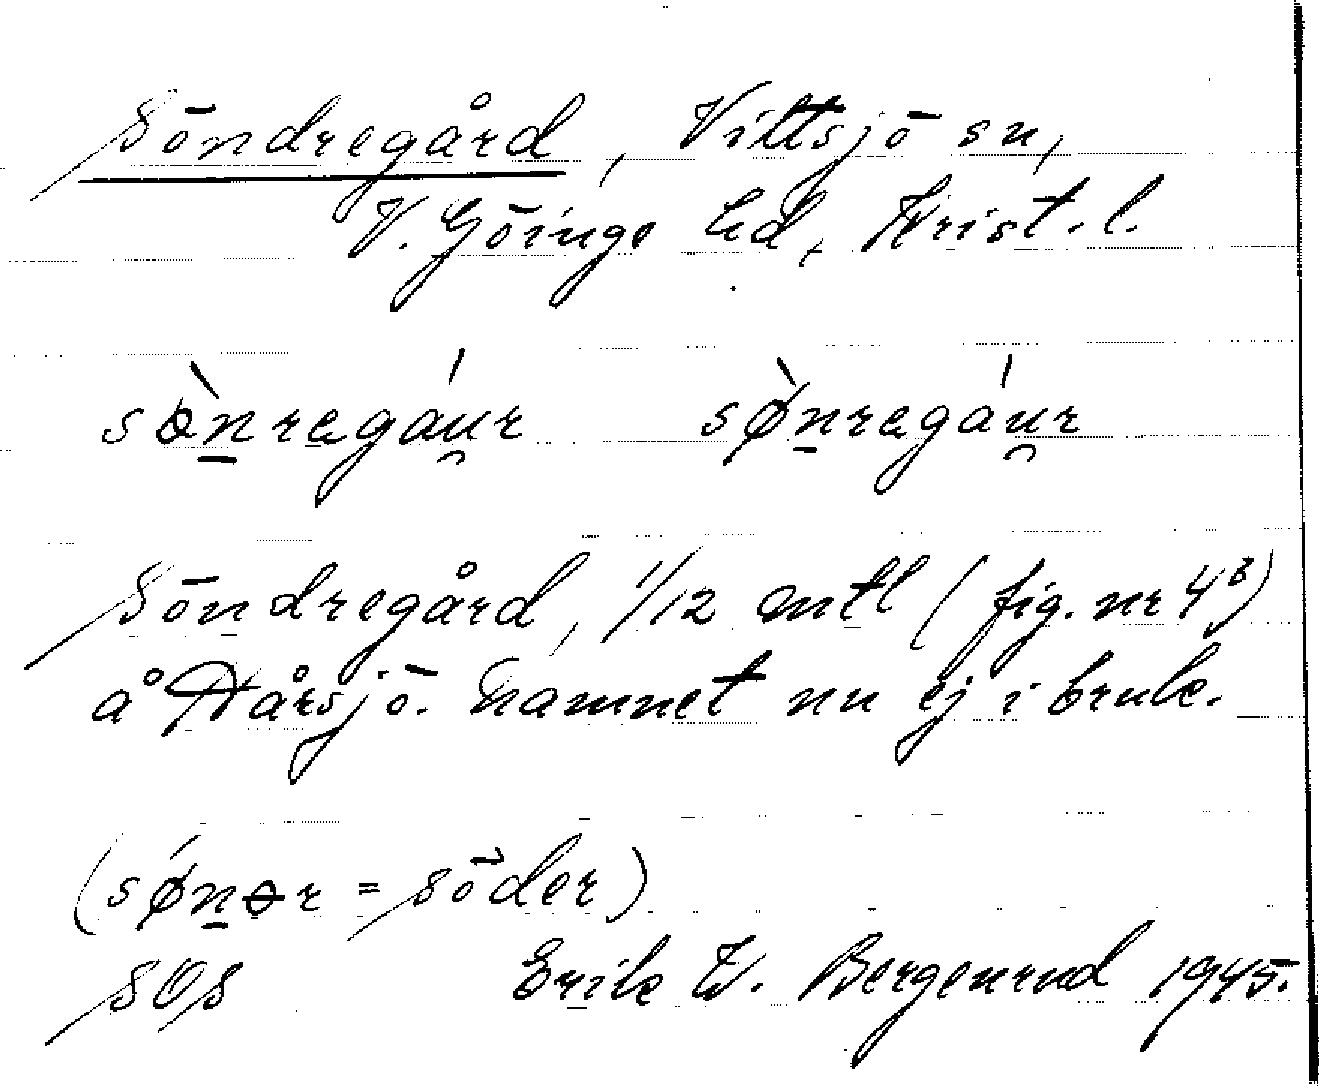 Söndregård, Vittsjö sn,
V. Göinge hd, Krist. l.
sònregáur sø̀nregáur
Söndregård, 1/12 mtl (fig. nr 4³)
å Hårsjö. Namnet nu ej i bruk.
(søńər = söder)
SOS Erik W. Bergenrud 1945.